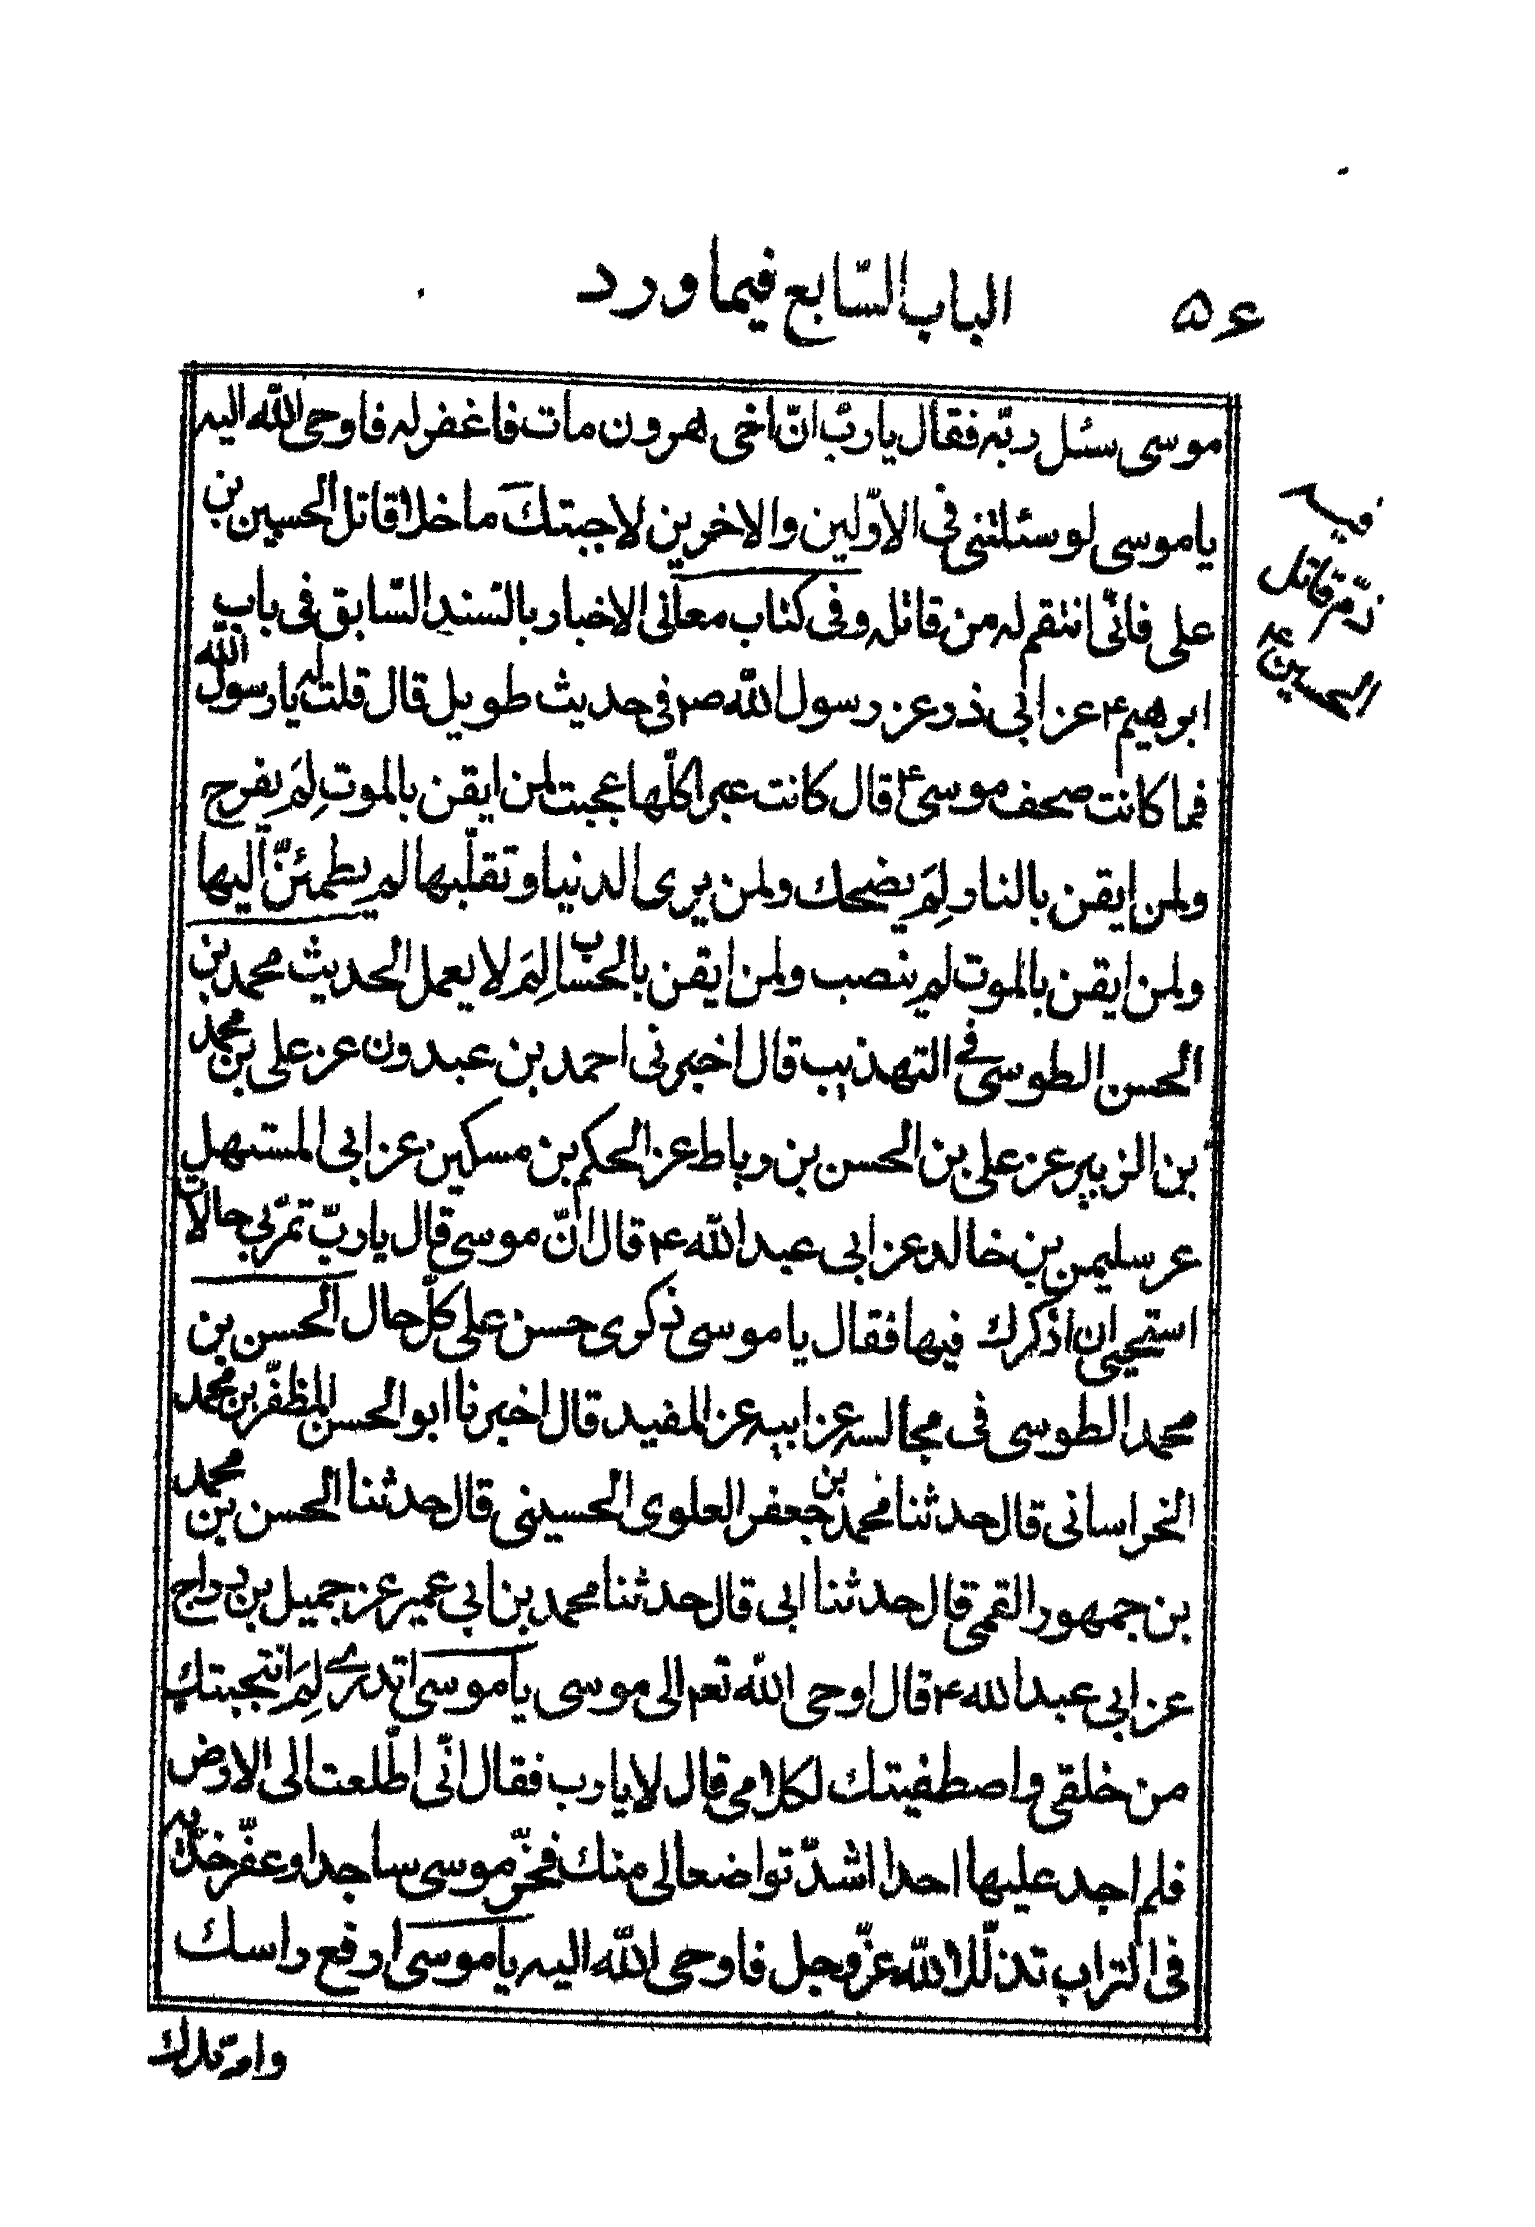 ۵۶
الباب السّابع فيما ورد
موسى سئل ربّه فقال يا ربّ انّ اخى هرون مات فاغفر له فاوحى الله اليه
يا موسى لو سئلتنى فى الاوّلين والاخرين لاجبتك ما خلا قاتل الحسين بن
على فانّى انتقم له من قاتله وفى كتاب معانى الاخبار بالسّند السّابق فى باب
ابرهيم ع عن ابى ذر عن رسول الله ص فى حديث طويل قال قلت له يا رسول الله
فما كانت صحف موسى ع قال كانت عبرا كلّها عجبت لمن ايقن بالموت لِمَ يفرح
ولمن ايقن بالنار لِمَ يضحك ولمن يرى الدنيا وتقلّبها لِمَ يطمئنّ اليها
ولمن ايقن بالموت لم ينصب ولمن ايقن بالحساب لِمَ لا يعمل الحديث محمد بن
الحسن الطوسى فى التهذيب قال اخبرنى احمد بن عبدون عن على بن محمد
بن الزبير عن على بن الحسن بن رباط عن الحكم بن مسكين عن ابى المستهل
عن سليمن بن خالد عن ابى عبد الله ع قال انّ موسى قال يا ربّ تمرّ بى حالات
استحيى ان اذكرك فيها فقال يا موسى ذكرى حسن على كلّ حال الحسن بن
محمد الطوسى فى مجالسه عن ابيه عن المفيد قال اخبرنا ابو الحسن المظفّر بن محمد
الخراسانى قال حدثنا محمد بن جعفر العلوى الحسينى قال حدثنا الحسن بن محمد
بن جمهور القمى قال حدثنا ابى قال حدثنا محمد بن ابى عمير عن جميل بن دراج
عن ابى عبد الله ع قال اوحى الله تع الى موسى يا موسى اتدرى لِمَ انتجبتك
من خلقى واصطفيتك لكلامى قال لا يا رب فقال انّى اطّلعت الى الارض
فلم اجد عليها احدا اشدّ تواضعا لى منك فخرّ موسى ساجدا وعفّر خدّيه
فى التراب تذلّلا لله عزّ وجل فاوحى الله اليه يا موسى ارفع راسك
وامرّ يدك
فيه
ذمّ قاتل
الحسين ع